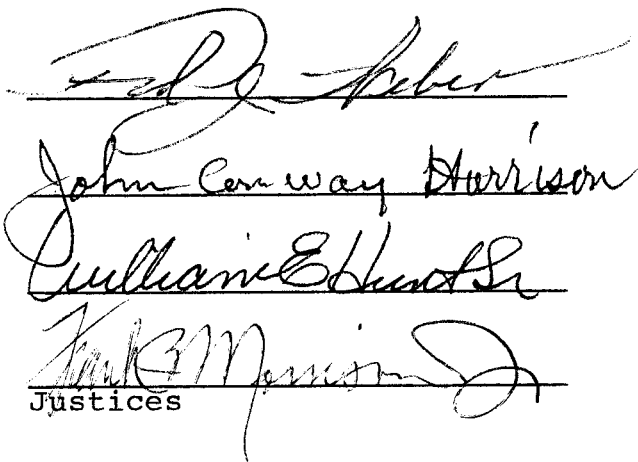 Fred J. Weber
John Conway Harrison
William E Hunt Sr
Frank B Morrison Jr
Justices